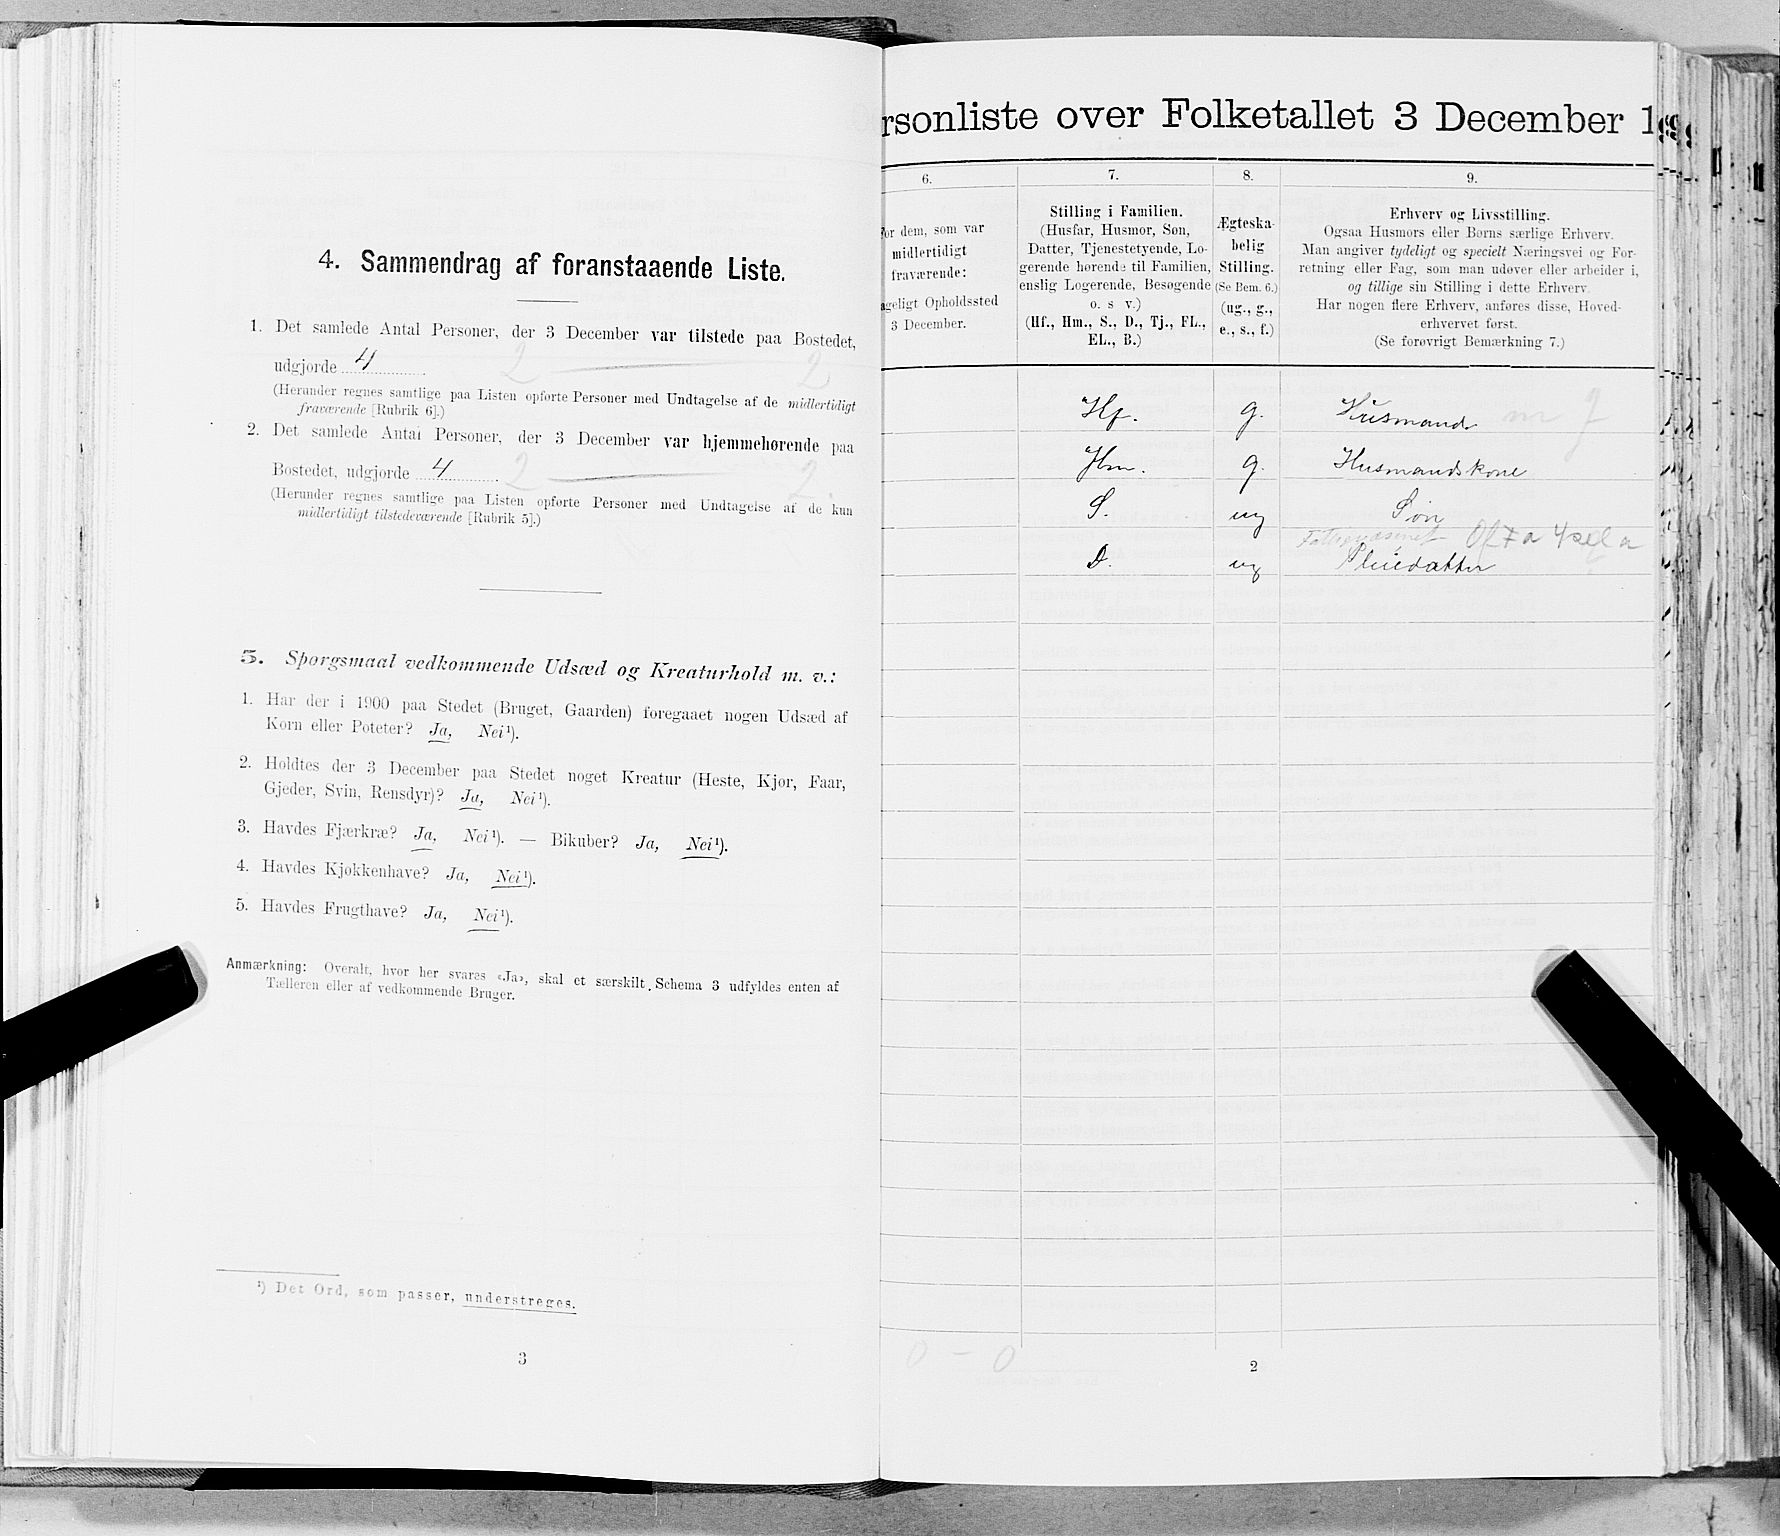 4. Sammendrag af foranstaaende Liste.
1. Det samlede Antal Personer, der 3 December var tilstede paa Bostedet,
udgjorde 4 2 — 2
(Herunder regnes samtlige paa Listen opførte Personer med Undtagelse af de midlertidigt
fraværende [Rubrik 6].)
2. Det samlede Antal Personer, der 3 December var hjemmehørende paa
Bostedet, udgjorde 4 2 — 2.
(Herunder regnes samtlige paa Listen opførte Personer med Undtagelse af de kun
midlertidigt tilstedeværende [Rubrik 5].)
5. Spørgsmaal vedkommende Udsæd og Kreaturhold m. v.:
1. Har der i 1900 paa Stedet (Bruget, Gaarden) foregaaet nogen Udsæd af
Korn eller Poteter? Ja, Nei¹).
2. Holdtes der 3 December paa Stedet noget Kreatur (Heste, Kjør, Faar,
Gjeder, Svin, Rensdyr)? Ja, Nei¹).
3. Havdes Fjærkræ? Ja, Nei¹). — Bikuber? Ja, Nei¹).
4. Havdes Kjøkkenhave? Ja, Nei¹).
5. Havdes Frugthave? Ja, Nei¹).
Anmærkning: Overalt, hvor her svares «Ja», skal et særskilt Schema 3 udfyldes enten af
Tælleren eller af vedkommende Bruger.
¹) Det Ord, som passer, understreges.
3
rsonliste over Folketallet 3 December 1
6.
or dem, som var
midlertidigt
fraværende:
ageligt Opholdssted
3 December.
7.
Stilling i Familien.
(Husfar, Husmor, Søn,
Datter, Tjenestetyende, Lo-
gerende hørende til Familien,
enslig Logerende, Besøgende
o. s v.)
(Hf., Hm., S., D., Tj., FL.,
EL., B.)
8.
Ægteska-
belig
Stilling.
(Se Bem. 6.)
(ug., g.,
e., s., f.)
9.
Erhverv og Livsstilling.
Ogsaa Husmors eller Børns særlige Erhverv.
Man angiver tydeligt og specielt Næringsvei og For-
retning eller Fag, som man udøver eller arbeider i,
og tillige sin Stilling i dette Erhverv.
Har nogen flere Erhverv, anføres disse, Hoved-
erhvervet først.
(Se forøvrigt Bemærkning 7.)
Hf. g. Husmand m g
Hm. g. Husmandskone
S. ug Søn
D. ug Pleiedatter
0 – 0
2